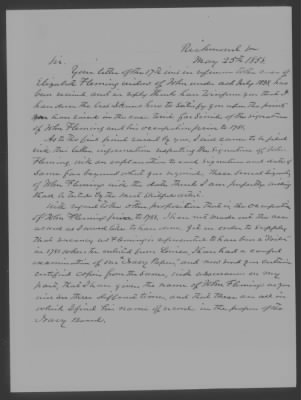 Richmond Va
May 25th 1858.
Sir.
Your letter of the 17th inst in reference to the case of
Elizabeth Fleming widow of John under act July 1838, has
been received and in reply thereto I can inform you that I
have done the best I know how to satisfy you upon the points
you have raised in the case touching far service of the signature
of John Fleming and his occupation prior to 1781.
As to the first point raised by you, I send some
with this letter information respecting the signature of John
Fleming, with an explanation to each signature and date of
same far beyond which you required. These several signatures
of John Fleming with the dates thereto I am perfectly willing
that
With regard to the other proposition that is, the occupation
of John Fleming prior to 1781, I have not made out the case
as I would like to have done, yet in order to supply
that vacancy as Fleming's appears to have been
in 1781 when he retired from service, I have had a careful
examination of our "Navy Papers," and now send you certain
certified copies from the same, with assurance on my
part, that I have given the name of John Fleming as given
on three different times, and that these are all in
which I find his name of record in the papers of the
Navy Board.